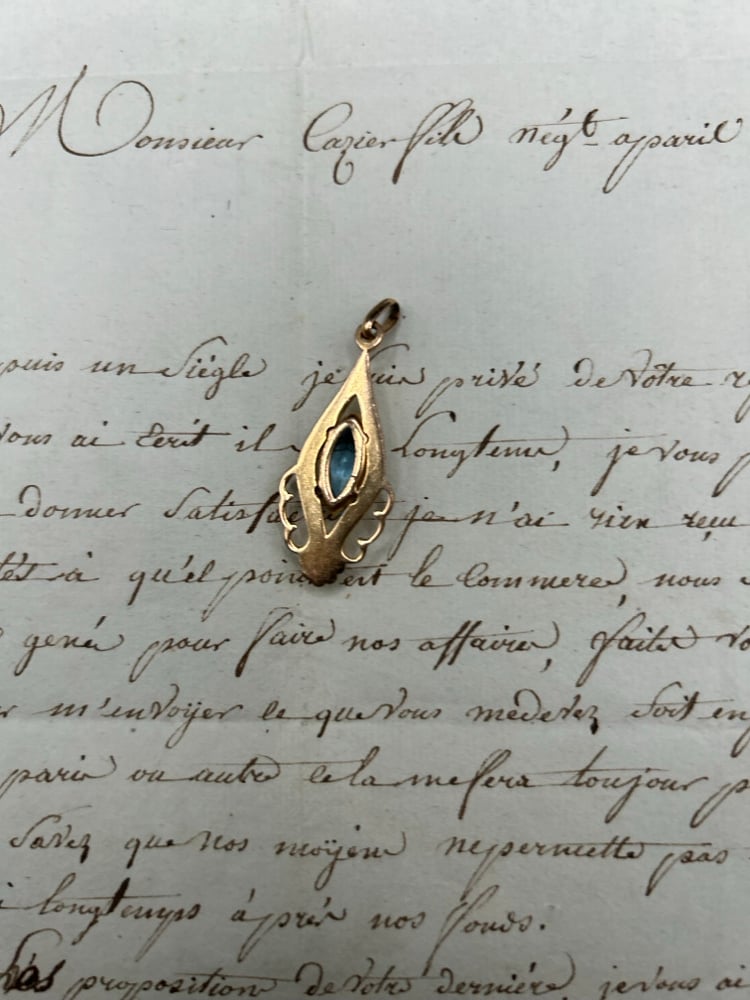 Monsieur Cazier fils négt a paris
puis un Siégle je suis privé de Votre
vous ai Ecrit il longtems, je vous
donner Satisfa je n'ai rien reçu
à qu'el point est le Commerce, nous
gené pour faire nos affaires, faites
m'envoÿer ce que Vous me devez Soit en
paris ou autre cela me fera toujour
Savez que Nos moÿens ne permette pas
longtemps âprés nos fonds.
proposition de Votre derniére, je vous ai